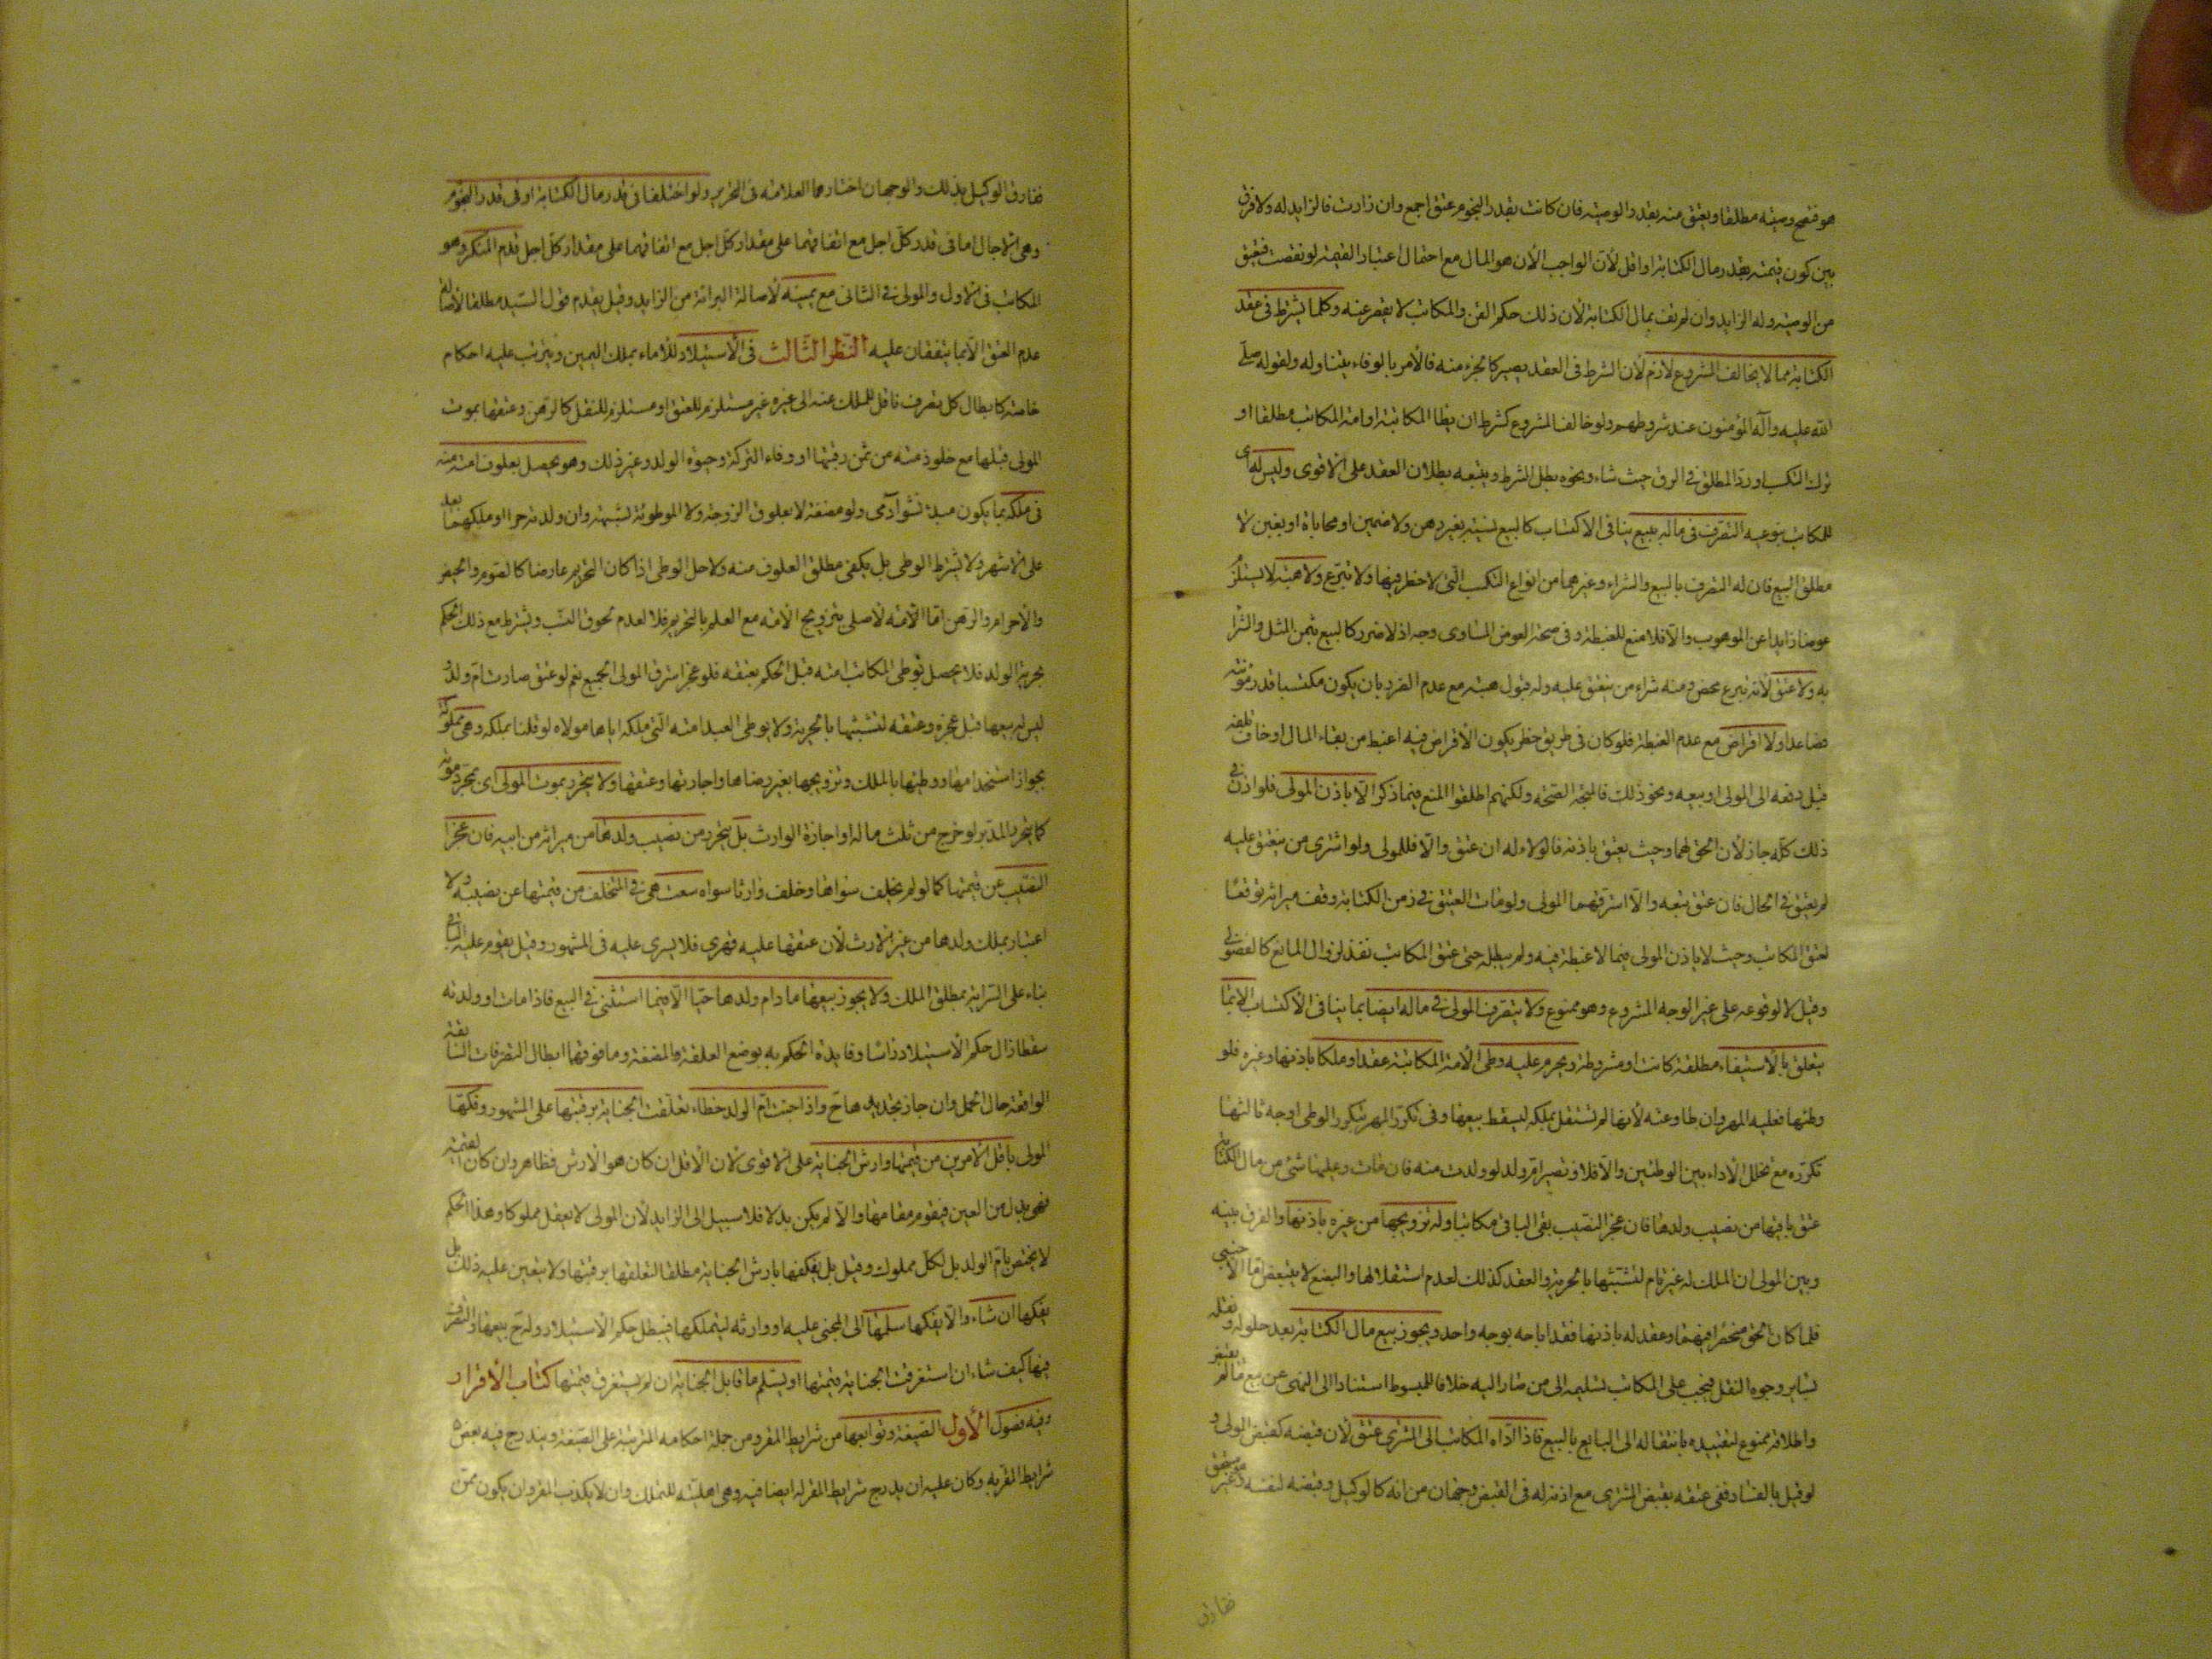 هو فتصح وصيته مطلقا ويعتق منه بقدر الوصية فان كانت بقدر النجوم عتق اجمع وان زادت فالزايد له ولا فرق
بين كون قيمته بقدر مال الكتابة او اقل لأن الواجب الأن هو المال مع احتمال اعتبار القيمة لو نقصت فيعتق
من الوصية وله الزايد وان لم يف بمال الكتابة لأن ذلك حكم القن والمكاتب لا يقصر عنه وكلما يشترط في عقد
الكتابة مما لا يخالف المشروع لازم لأن الشرط في العقد يصير كالجزء منه فالأمر بالوفاء يتناوله ولقوله صلى
الله عليه وآله المؤمنون عند شروطهم ولو خالف المشروع كشرط ان يطأ المكاتبة او امة المكاتب مطلقا او
ترك التكسب او رد المطلق في الرق حيث شاء ونحوه بطل الشرط ويتبعه بطلان العقد على الاقوى وليس له اى
للمكاتب بنوعيه التصرف في ماله ببيع ينافي الاكتساب كالبيع نسيئة بغير رهن ولا ضمين او محاباة او بغبن لا
مطلق البيع فان له التصرف بالبيع والشراء وغيرهما من انواع التكسب التي لا خطر فيها ولا تبرع ولا هبة لا تستلزم
عوضا زايدا عن الموهوب والا فلا منع للغبطة وفي صحة العوض المساوى وجه اذ لا ضرر كالبيع بثمن المثل والشرا
به ولا عتق لأنه تبرع محض ومنه شراء من ينعتق عليه وله قبول هبته مع عدم الضرر بان يكون مكتسبا قدر مؤنته
فصاعدا ولا اقراض مع عدم الغبطة فلو كان في طريق خطر يكون الأقراض فيه اغبط من بقاء المال او خاف تلفه
قبل دفعه الى المولى او بيعه ونحو ذلك فالمتجه الصحة ولكنهم اطلقوا المنع فيما ذكر الا باذن المولى فلو اذن في
ذلك كله جاز لأن الحق لهما وحيث يعتق باذنه فالولاء له ان عتق والا فللمولى ولو اشترى من ينعتق عليه
لم يعتق في الحال فان عتق تبعه والا استرقهما المولى ولو مات العتيق في زمن الكتابة وقف ميراثه توقعا
لعتق المكاتب وحيث لا ياذن المولى فيما لا غبطة فيه ولم يبطله حتى عتق المكاتب نفذ لزوال المانع كالفضولى
وقيل لا لوقوعه على غير الوجه المشروع وهو ممنوع ولا يتصرف المولى في ماله ايضا بما ينافي الأكتساب الا بما
يتعلق بالاستيفاء مطلقة كانت او مشروطة ويحرم عليه وطى الأمة المكاتبة عقدا وملكا باذنها وغيره فلو
وطئها فعليه المهر وان طاوعته لأنها لم تستقل بملكه ليسقط ببيعها وفي تكرر المهر بتكرر الوطى اوجه ثالثها
تكرره مع تخلل الأداء بين الوطئين والا فلا وتصير ام ولد لو ولدت منه فان مات وعليها شئ من مال الكتابة
عتق باقيها من نصيب ولدها فان عجز النصيب بقى الباقي مكاتبا وله تزويجها من غيره باذنها والفرق بينه
وبين المولى ان الملك له غير تام لتشبثها بالحرية والعقد كذلك لعدم استقلالها والبضع لا يتبعض اما الأجنبي
فلما كان الحق منحصرا فيهما وعقد له باذنها فقد اباحه بوجه واحد ويجوز بيع مال الكتابة بعد حلوله ونقله
بساير وجوه النقل فيجب على المكاتب تسليمه الى من صار اليه خلافا للمبسوط استنادا الى النهى عن بيع ما لم يقبض
واطلاقه ممنوع لتقييده بانتقاله الى البايع بالبيع فاذا اداه المكاتب الى المشترى عتق لأن قبضه كقبض المولى و
لو قيل بالفساد ففي عتقه بقبض المشترى مع اذنه له في القبض وجهان من انه كالوكيل وقبضه لنفسه وهو مستحق لغيره
ففارق
ففارق الوكيل بذلك والوجهان اختارهما العلامة في التحرير ولو اختلفا في قدر مال الكتابة او في قدر النجوم
وهى الاجال اما في قدر كل اجل مع اتفاقهما على مقدار كل اجل مع اتفاقهما على مقدار كل اجل قدم المنكر وهو
المكاتب في الاول والمولى في الثاني مع يمينه لأصالة البرائة من الزايد وقيل يقدم قول السيد مطلقا لأصالة
عدم العتق الا بما يتفقان عليه النظر الثالث في الأستيلاد للأماء بملك اليمين ويترتب عليه احكام
خاصة كابطال كل تصرف ناقل للملك عنه الى غيره غير مستلزم للعتق او مستلزم للنقل كالرهن وعتقها بموت
المولى قبلها مع خلو ذمته من ثمن رقبتها او وفاء التركة وحيوة الولد وغير ذلك وهو يحصل بعلوق امته منه
في ملكه بما يكون مبدء نشو ادمى ولو مضغة لا بعلوق الزوجة ولا الموطوئة لشبهة وان ولدته حرا او ملكهما بعد
على الاشهر ولا يشترط الوطى بل يكفى مطلق العلوق منه ولا حل الوطى اذا كان التحريم عارضا كالصوم والحيض
والأحرام والرهن اما التحريم الأصلى بتزويج الأمة مع العلم بالتحريم فلا لعدم لحوق النسب ويشترط مع ذلك الحكم
بحرية الولد فلا يحصل بوطى المكاتب امته قبل الحكم بعتقه فلو عجز استرق المولى الجميع نعم لو عتق صارت ام ولد و
ليس له بيعها قبل عجزه وعتقه لتشبثها بالحرية ولا بوطى العبد امته التي ملكه اياها مولاه لو قلنا بملكه وهى مملوكة
يجوز استخدامها ووطئها بالملك وتزويجها بغير رضاها واجارتها وعتقها ولا يتحرر بموت المولى اى مجرد موته
كما يتحرر المدبر لو خرج من ثلث ماله او اجازة الوارث بل يتحرر من نصيب ولدها من ميراثه من ابيه فان عجز ا
النصيب عن قيمتها كما لو لم يخلف سواها وخلف وارثا سواه سعت هى في المتخلف من قيمتها عن نصيبه ولا
اعتبار بملك ولدها من غير الارث لأن عتقها عليه قهرى فلا يسرى عليه في المشهور وقيل يقوم عليه الباقى
بناء على السراية بمطلق الملك ولا يجوز بيعها ما دام ولدها حيا الا فيما استثنى في البيع فاذا مات او ولدته
سقطا زال حكم الأستيلاد راسا وفايدة الحكم به بوضع العلقة والمضغة وما فوقهما ابطال التصرفات السابقة
الواقعة حال الحمل وان جاز تجديدها ح واذا جنت ام الولد خطاء تعلقت الجناية برقبتها على المشهور وفكها
المولى باقل الأمرين من قيمتها وارش الجناية على الاقوى لان الأقل ان كان هو الأرش فظاهر وان كان القيمة
فهى بدل من العين فيقوم مقامها والا لم يكن بدلا فلا سبيل الى الزايد لأن المولى لا يعقل مملوكا وهذا الحكم
لا يختص بام الولد بل لكل مملوك وقيل بل يفكها بارش الجناية مطلقا لتعلقها برقبتها ولا يتعين عليه ذلك بل
يفكها ان شاء والا يفكها سلمها الى المجنى عليه او وارثه ليتملكها فيبطل حكم الأستيلاد وله ح بيعها والتصرف
فيها كيف شاء ان استغرقت الجناية قيمتها او يسلم ما قابل الجناية ان لم يستغرق قيمتها كتاب الأقرار
وفيه فصول الأول الصيغة وتوابعها من شرايط المقر ومن جملة احكامه المترتبة على الصيغة ويندرج فيه بعض
شرايط المقر به وكان عليه ان يدرج شرايط المقر له ايضا فيه وهى اهليته للتملك وان لا يكذب المقر وان يكون ممن